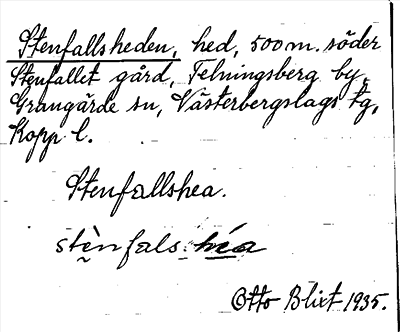 Stenfallsheden, hed, 500 m. söder
Stenfallet gård, Telningsberg by,
Grangärde sn, Västerbergslags tg,
Kopp l.
Stenfallshea.
stènfals héa
Otto Blixt 1935.